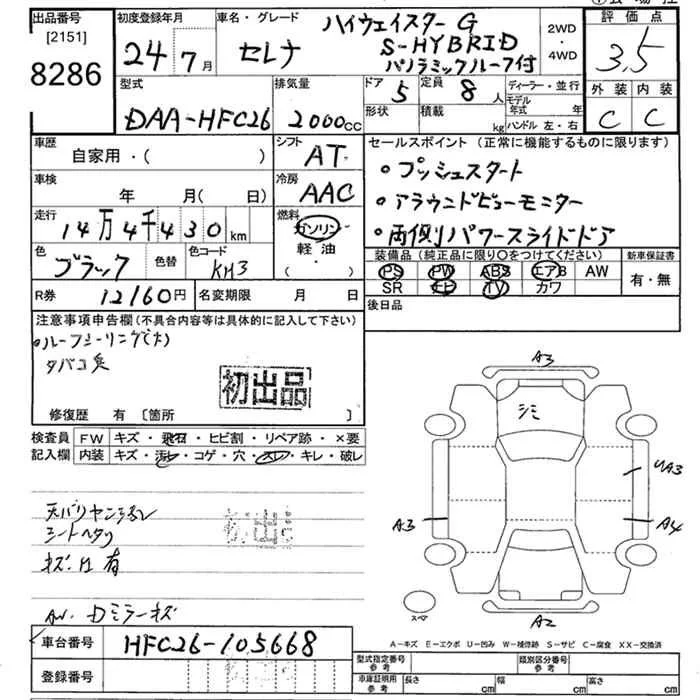 出品番号
[2151]
8286
初度登録年月
24年7月
車名・グレード
セレナ
ハイウェイスターG
S-HYBRID
パノラミックルーフ付
2WD
・
4WD
評価点
3.5
外装 内装
C C
型式
DAA-HFC26
排気量
2000cc
ドア
5
形状
定員
8人
積載
kg
ディーラー・並行
モデル年式 年
ハンドル 左・右
車歴
自家用・( )
シフト
AT
車検
年 月( 日)
冷房
AAC
走行
14万4千430km
燃料
ガソリン
軽・油
・( )
色
ブラック
色替
色コード
KH3
R券 12160円
名変期限 月 日
セールスポイント(正常に機能するものに限ります)
・プッシュスタート
・アラウンドビューモニター
・両側パワースライドドア
装備品(純正品に限り○をつけてください)
PS PW ABS エアB AW
SR ナビ TV カワ
新車保証書
有・無
後日品
注意事項申告欄(不具合内容等は具体的に記入して下さい)
タバコ臭
初出品
修復歴 有〔箇所 〕
検査員
記入欄
FW キズ・飛石・ヒビ割・リペア跡・×要
内装 キズ・汚レ・コゲ・穴・スレ・キレ・破レ
シートヘタリ
有
AW. Dミラーキズ
初出品
A3
シミ
UA3
A3
A4
A2
スペア
車台番号 HFC26-105668
登録番号
A-キズ E-エクボ U-凹み W-補修跡 S-サビ C-腐食 XX-交換済
型式指定番号 参考
類別区分番号 参考
車庫証明用 参考
長さ cm 幅 cm 高さ cm